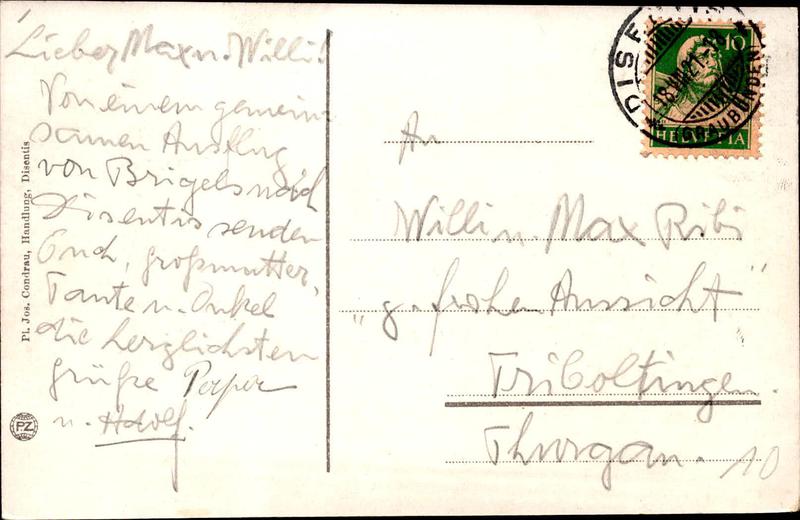 Lieber Max u. Willi!
Von einem gemein-
samen Ausflug
von Brigels nach
Disentis senden
Euch, Großmutter,
Tante u. Onkel
die herzlichsten
Grüße Papa
u. Adolf.
Pl. Jos. Condrau, Handlung, Disentis
PZ
DISENTIS
18.VII.21.-18
(GRAUBÜNDEN)
10
HELVETIA
An
Willi u. Max Ribi
"z. frohen Aussicht"
Triboltingen.
Thurgau.
10